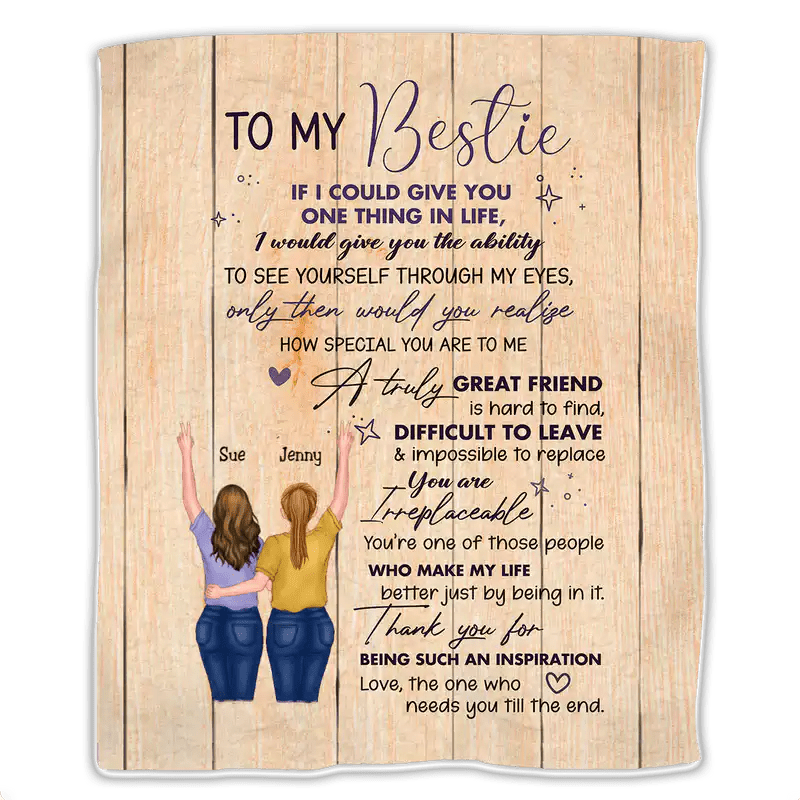 TO MY Bestie
IF I COULD GIVE YOU
ONE THING IN LIFE,
I would give you the ability
TO SEE YOURSELF THROUGH MY EYES,
only then would you realize
HOW SPECIAL YOU ARE TO ME
A truly GREAT FRIEND
is hard to find,
DIFFICULT TO LEAVE
& impossible to replace
Sue Jenny
You are
Irreplaceable
You're one of those people
WHO MAKE MY LIFE
better just by being in it.
Thank you for
BEING SUCH AN INSPIRATION
Love, the one who
needs you till the end.